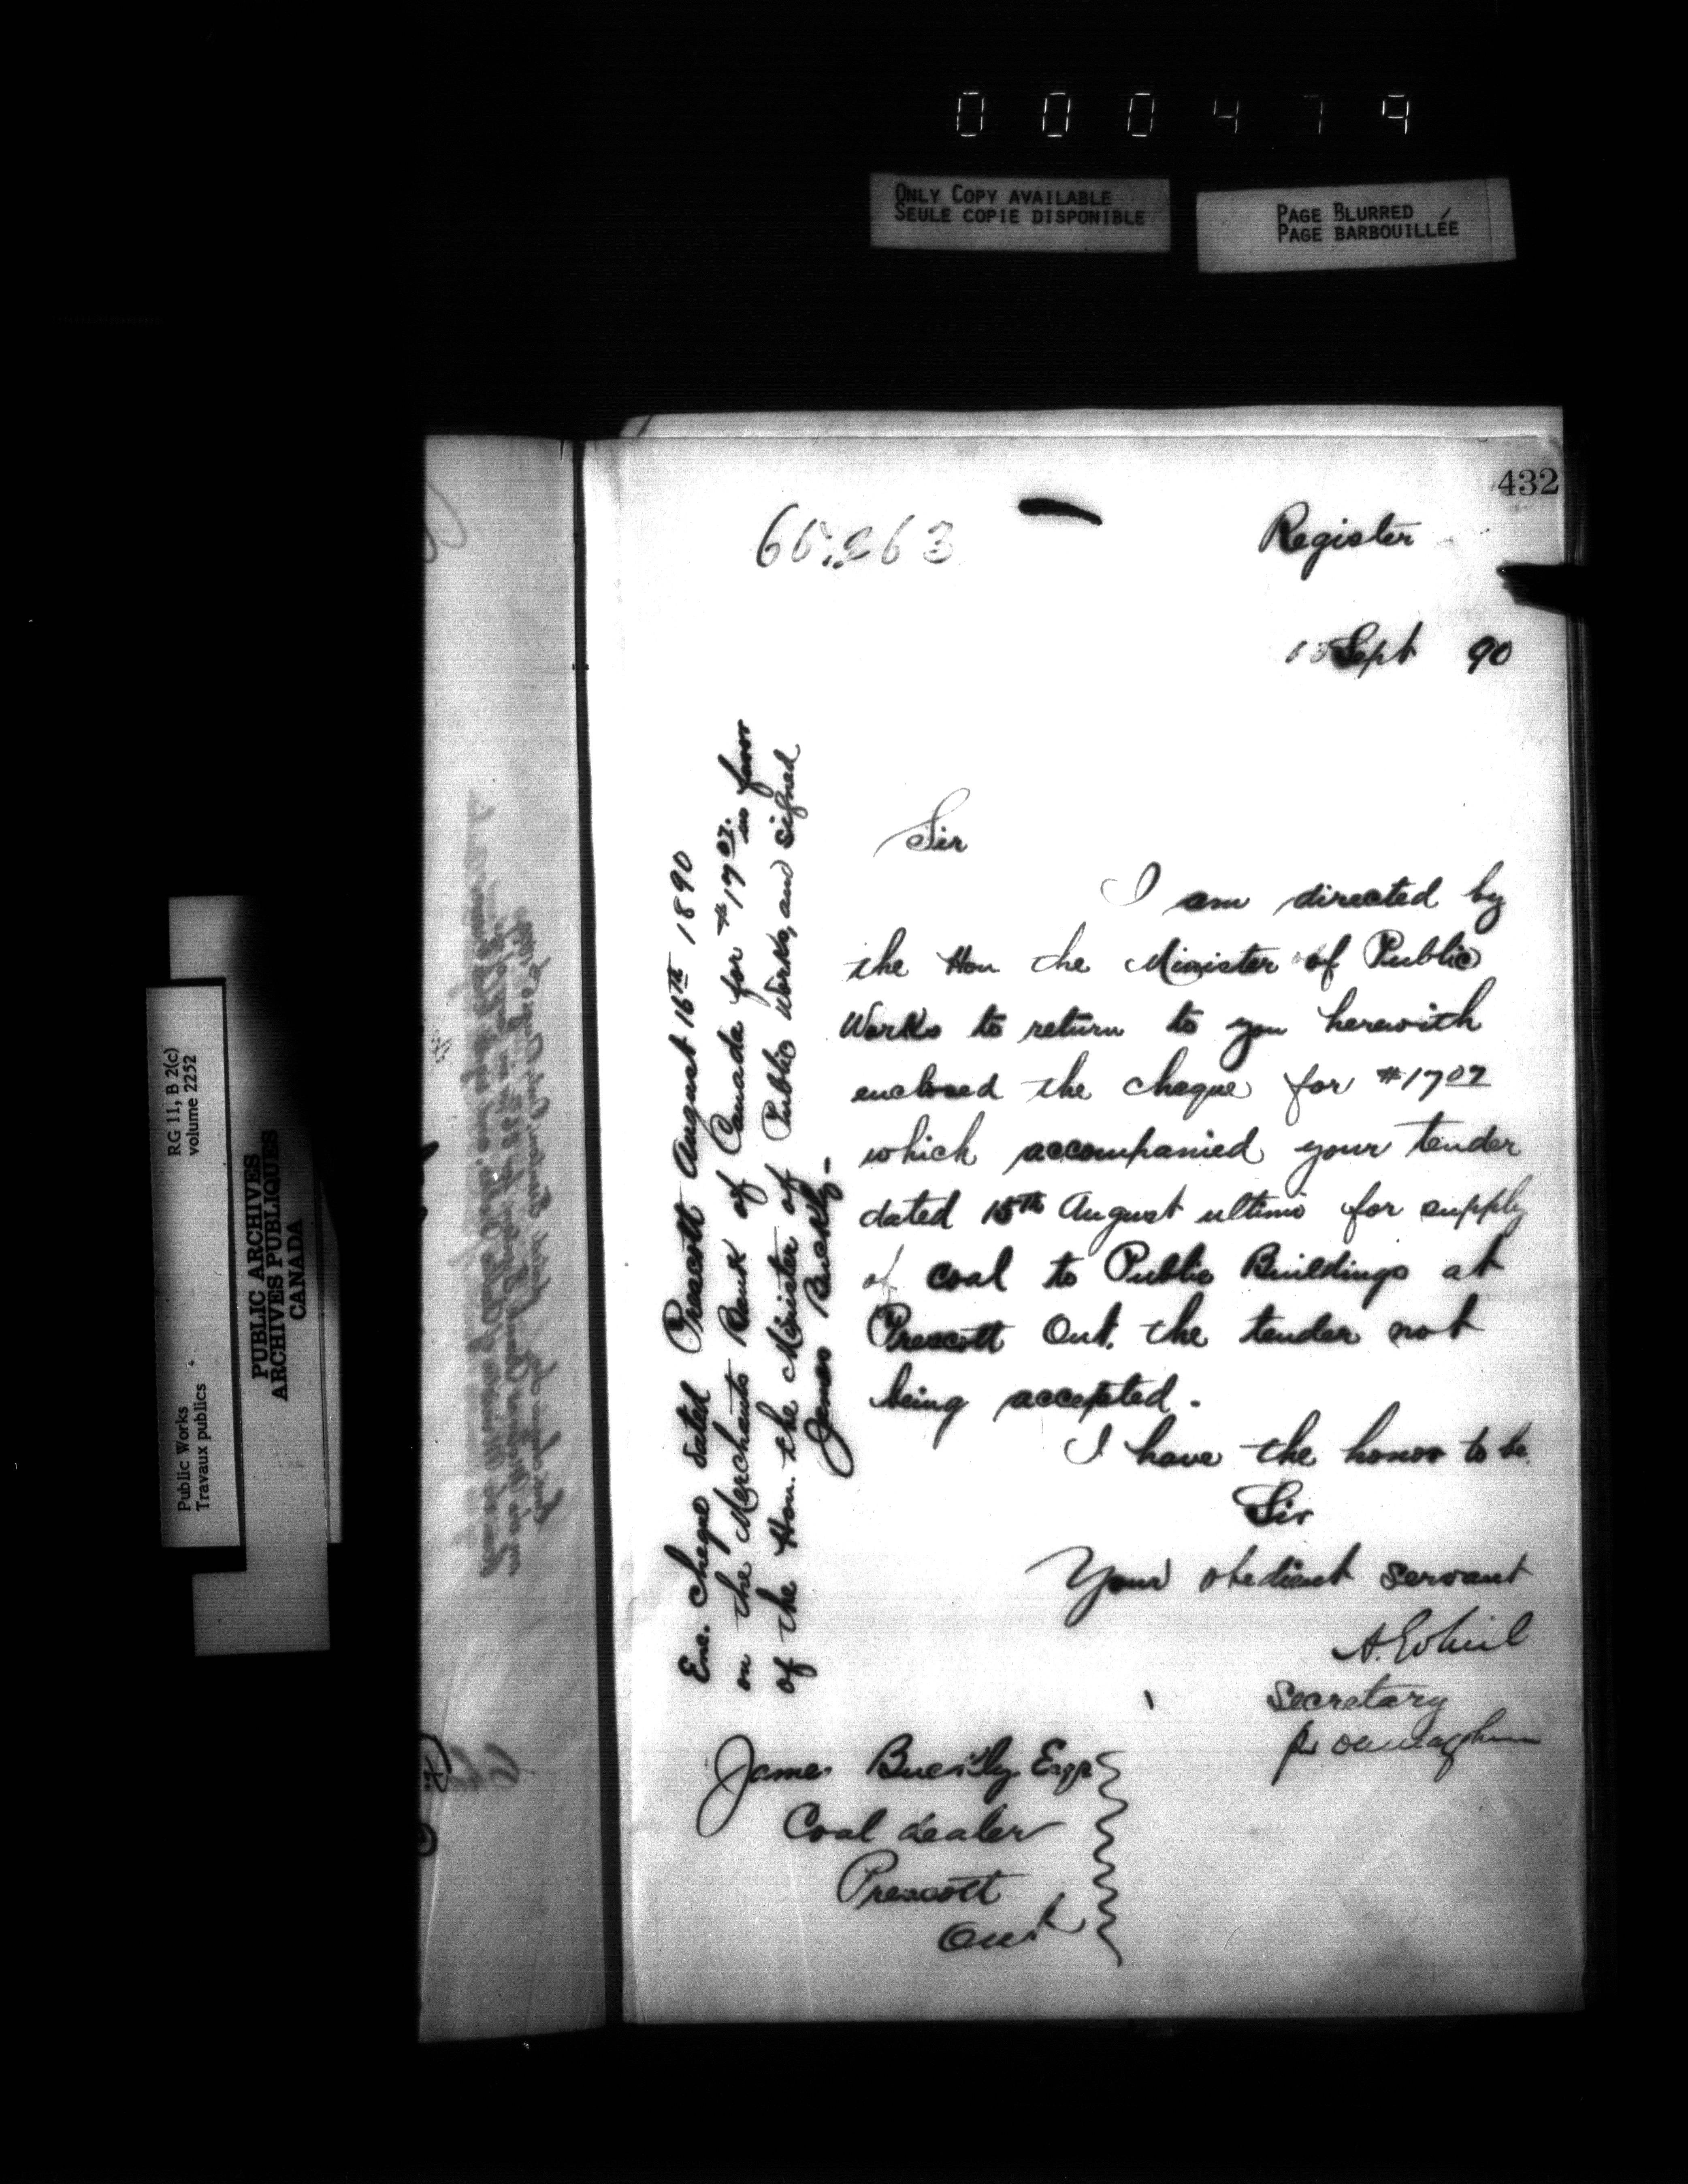 000479
ONLY COPY AVAILABLE
SEULE COPIE DISPONIBLE
PAGE BLURRED
PAGE BARBOUILLÉE
432
Register
Sept 90
Sir
I am directed by
the Hon the Minister of Public
Works to return to you herewith
enclosed the cheque for $17 07
which accompanied your tender
dated 15th August ultimo for supply
of coal to Public Buildings at
Prescott Ont. the tender not
being accepted.
I have the honor to be
Sir
Your obedient servant
Secretary
James Esqr
Coal dealer
Prescott
Ont
Enc. Cheque dated Prescott August 16th 1890
on the Merchants Bank of Canada for $17 07. in favor
of the Hon. the Minister of Public Works, and signed
James
RG 11, B 2(c)
volume 2252
Public Works
Travaux publics
PUBLIC ARCHIVES
ARCHIVES PUBLIQUES
CANADA